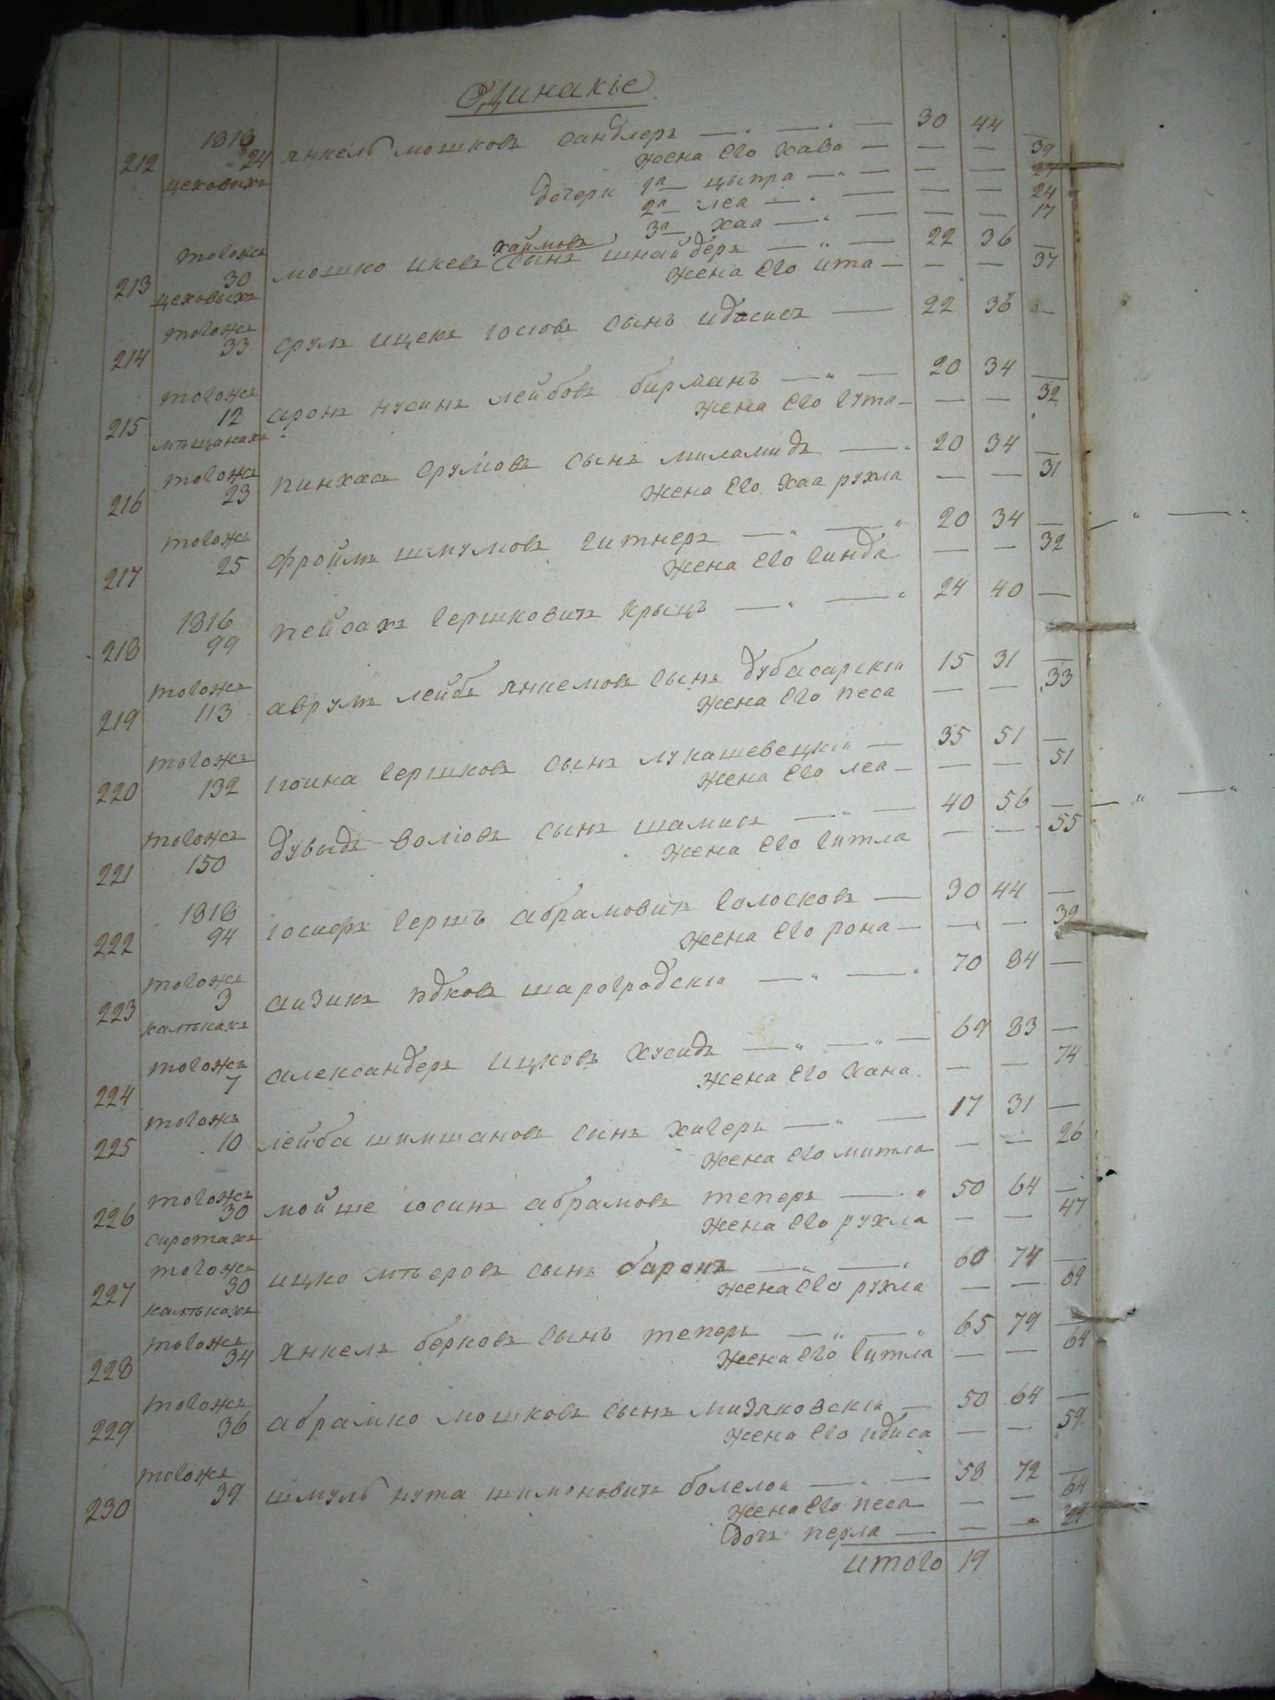 Одинакіе
212 1818 24 цеховыхъ Янкель Мошковъ Сандлеръ 30 44 —
жена его Хава — — 39
дочери 1я Ципра — — 27
2я Леа — — 24
3я Хаа — — 17
Хаимовъ
213 того же 30 цеховыхъ Мошко Ицевъ сынъ Шнайдеръ 22 36 —
жена его Ита — — 37
214 того же 33 Срулъ Ицекъ Іосіовъ сынъ 22 36 —
215 того же 12 мѣщанахъ Аронъ Нусинъ Лейбовъ Бирманъ 20 34 —
жена его Гута — — 32
216 того же 23 Пинхасъ Сруліовъ сынъ Миламидъ 20 34 —
жена его Хая Рухла — — 31
217 того же 25 Фроймъ Шмуліовъ Гитнеръ 20 34 —
жена его Гинда — — 32
218 1816 99 Пейсахъ Гершковичъ Крыцъ 24 40 —
219 того же 113 Аврумъ Лейбъ Янкелювъ сынъ Дубасарскій 15 31 —
жена его Песа — — 33
220 того же 132 Іоина Гершковъ сынъ Лукашевецкій 35 51 —
жена его Леа — — 51
221 того же 150 Дувыдъ Воліовъ сынъ Шамисъ 40 56 —
жена его Гитла — — 55
222 1818 94 Іосифъ Гершъ Абрамовичъ Голосковъ 30 44 —
жена его Рона — — 39
223 того же 3 калѣкахъ Айзикъ Юдковъ Шарогродскій 70 84 —
224 того же 7 Александеръ Ицковъ Хусидъ 69 83 —
жена его Хана — — 74
225 того же 10 Лейба Шимшановъ сынъ Хигеръ 17 31 —
жена его Митла — — 26
226 того же 30 сиротахъ Мойше Іосинъ Абрамовъ Теперъ 50 64 —
жена его Рухла — — 47
227 того же 30 калѣкахъ Ицко Мѣеровъ сынъ Баронъ 60 74 —
жена его Рухла — — 69
228 того же 34 Янкель Берковъ сынъ Теперъ 65 79 —
жена его Гитла — — 64
229 того же 36 Абрамко Мошковъ сынъ Мизяковскій 50 64 —
жена его Идиса — — 59
230 того же 39 Шмуль Нута Шимоновичъ Болелои 58 72 —
жена его Песа — — 64
дочь Перла — —
итого 19